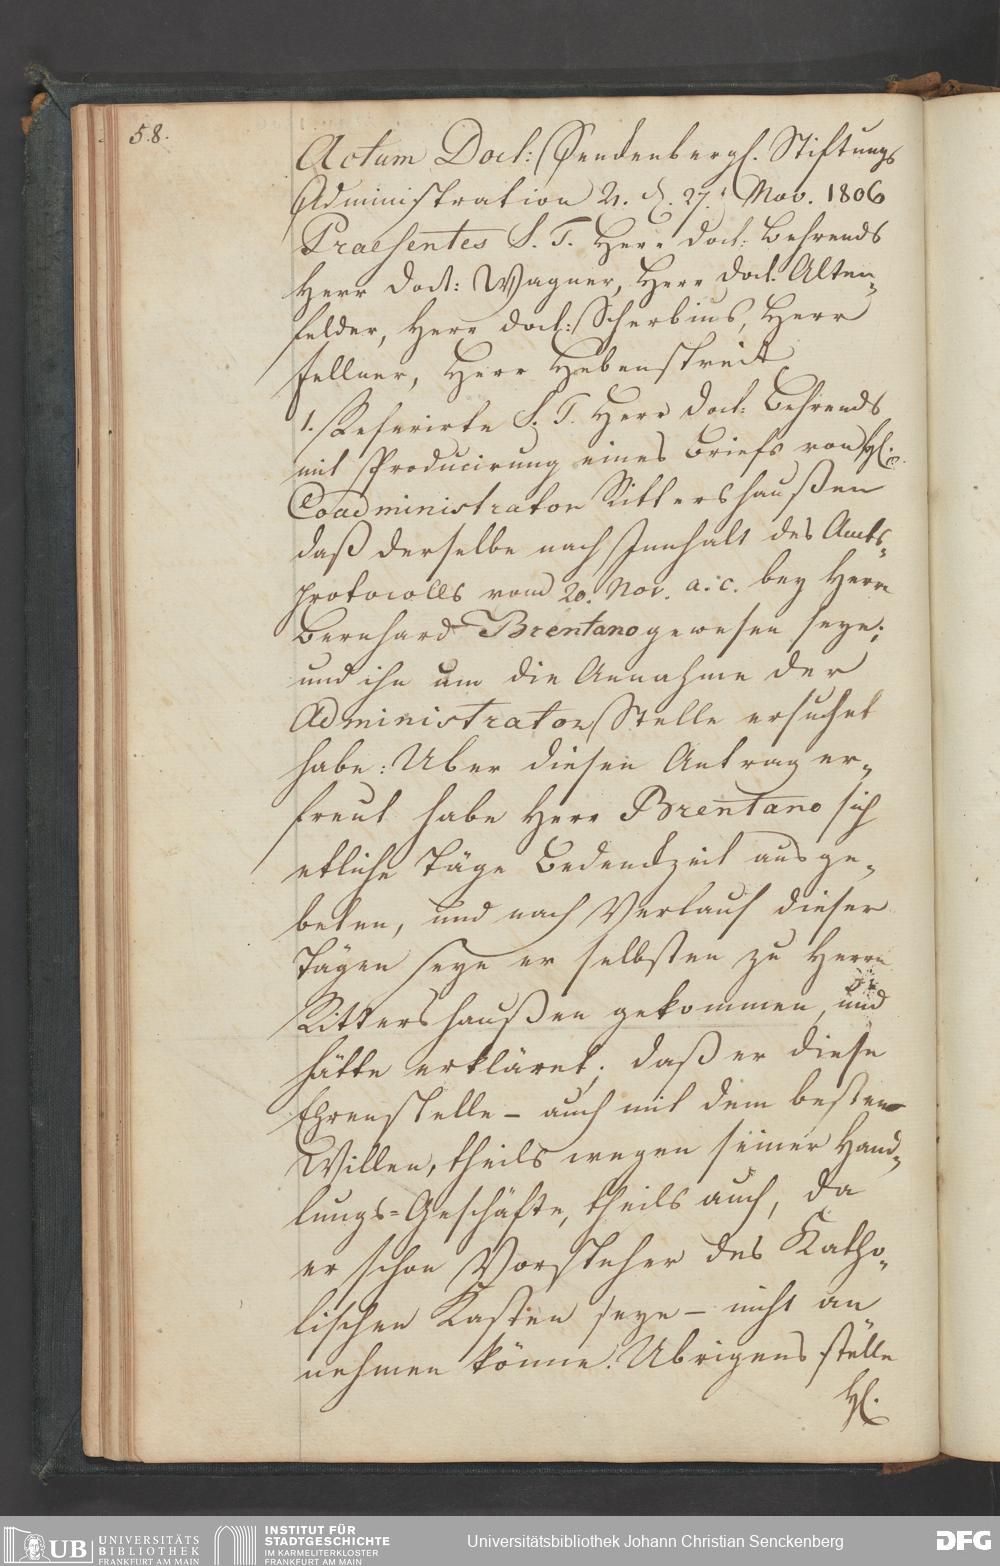 58.
Actum Doct: Senckenbergl. Stiftungs
Administration d. 27. Nov. 1806
Praesentes S. T. Herr Doct: Behrends
Herr Doct: Wagner, Herr Doct. Alten-
felder, Herr Doct: Scherbius, Herr
Fellner, Herr Hebenstreit
1. Referirte S. T. Herr Doct: Behrends
mit Producirung eines Briefs von H.
Coadministrator Rittershaußen
daß derselbe nach Innhalt des Amts-
protocolls vom 20. Nov. a. c. bey Herrn
Bernhard Brentano gewesen seye;
und ihn um die Annahme der
Administrator Stelle ersuchet
habe: Uber diesen Antrag er-
freut habe Herr Brentano sich
etliche Täge Bedenckzeit ausge-
beten, und nach Verlauf dieser
Tägen seye er selbsten zu Herrn
Rittershaußen gekommen, und
hätte erkläret; daß er diese
Ehrenstelle – auch mit dem besten
Willen, theils wegen seiner Hand-
lungs-Geschäfte, theils auch, da
er schon Vorsteher des Katho-
lischen Kasten seye – nicht an
nehmen könne. Ubrigens stelle
H.
UB UNIVERSITÄTS
BIBLIOTHEK
FRANKFURT AM MAIN
INSTITUT FÜR
STADTGESCHICHTE
IM KARMELITERKLOSTER
FRANKFURT AM MAIN
Universitätsbibliothek Johann Christian Senckenberg
DFG